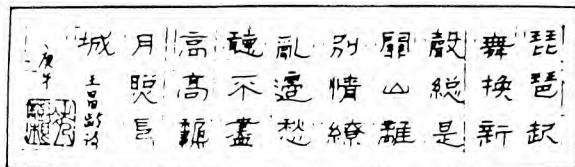 琵琶起
舞換新
聲総是
關山離
別情繚
亂邊愁
聽不盡
高高龝
月照長
城
王昌齡詩
庚午